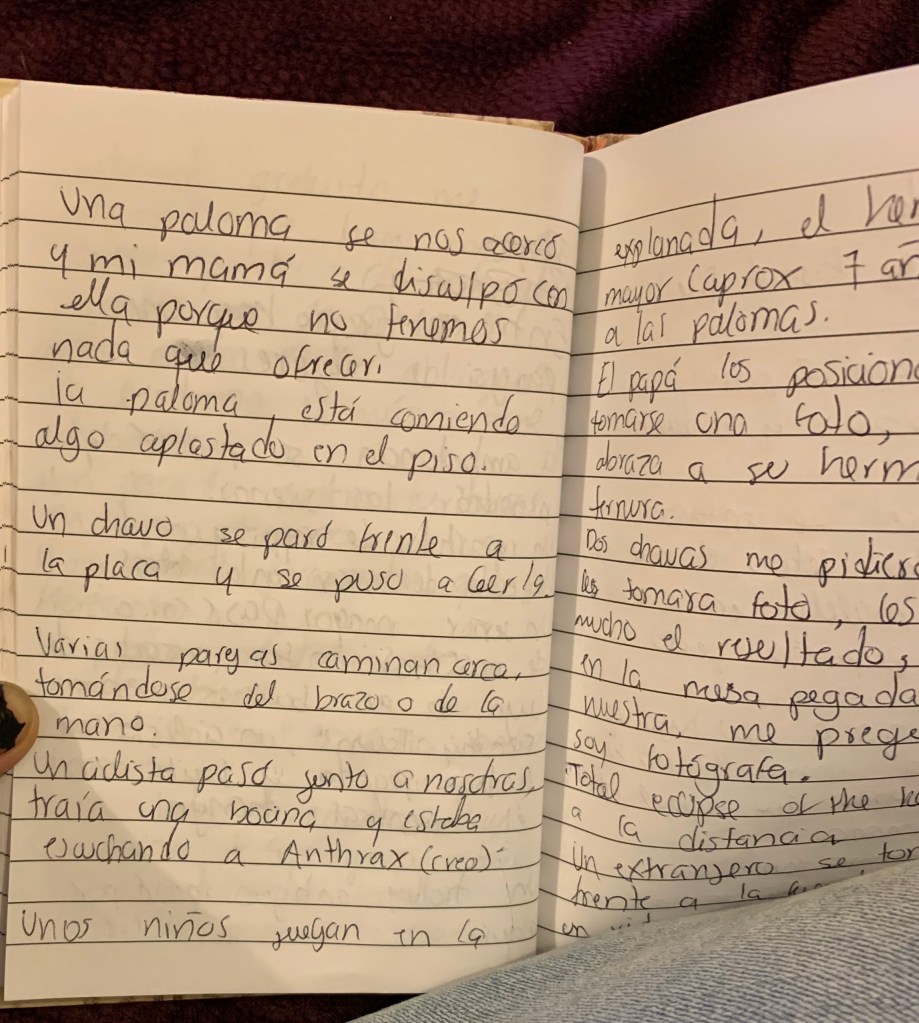 Una paloma se nos acercó
y mi mamá se disculpó con
ella porque no tenemos
nada que ofrecer.
la paloma está comiendo
algo aplastado en el piso.
Un chavo se paró frente a
la placa y se puso a leerla.
Varias parejas caminan cerca,
tomándose del brazo o de la
mano.
Un ciclista pasó junto a nosotras,
traía una bocina y estaba
escuchando a Anthrax (creo)
Unos niños juegan en la
explanada, el
mayor (aprox 7
a las palomas.
El papá los
tomarse una foto,
abraza a su
ternura.
Dos chavas me
les tomara foto, les
mucho el resultado,
en la mesa pegada
nuestra, me
soy fotógrafa.
Total eclipse of the
a la distancia
Un extranjero se
frente a la
en